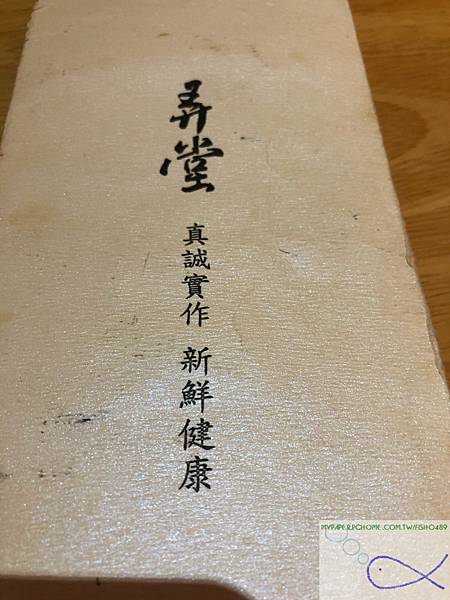 弄堂
真誠實作 新鮮健康
MYPAPER.PCHOME.COM.TW/FISH0489